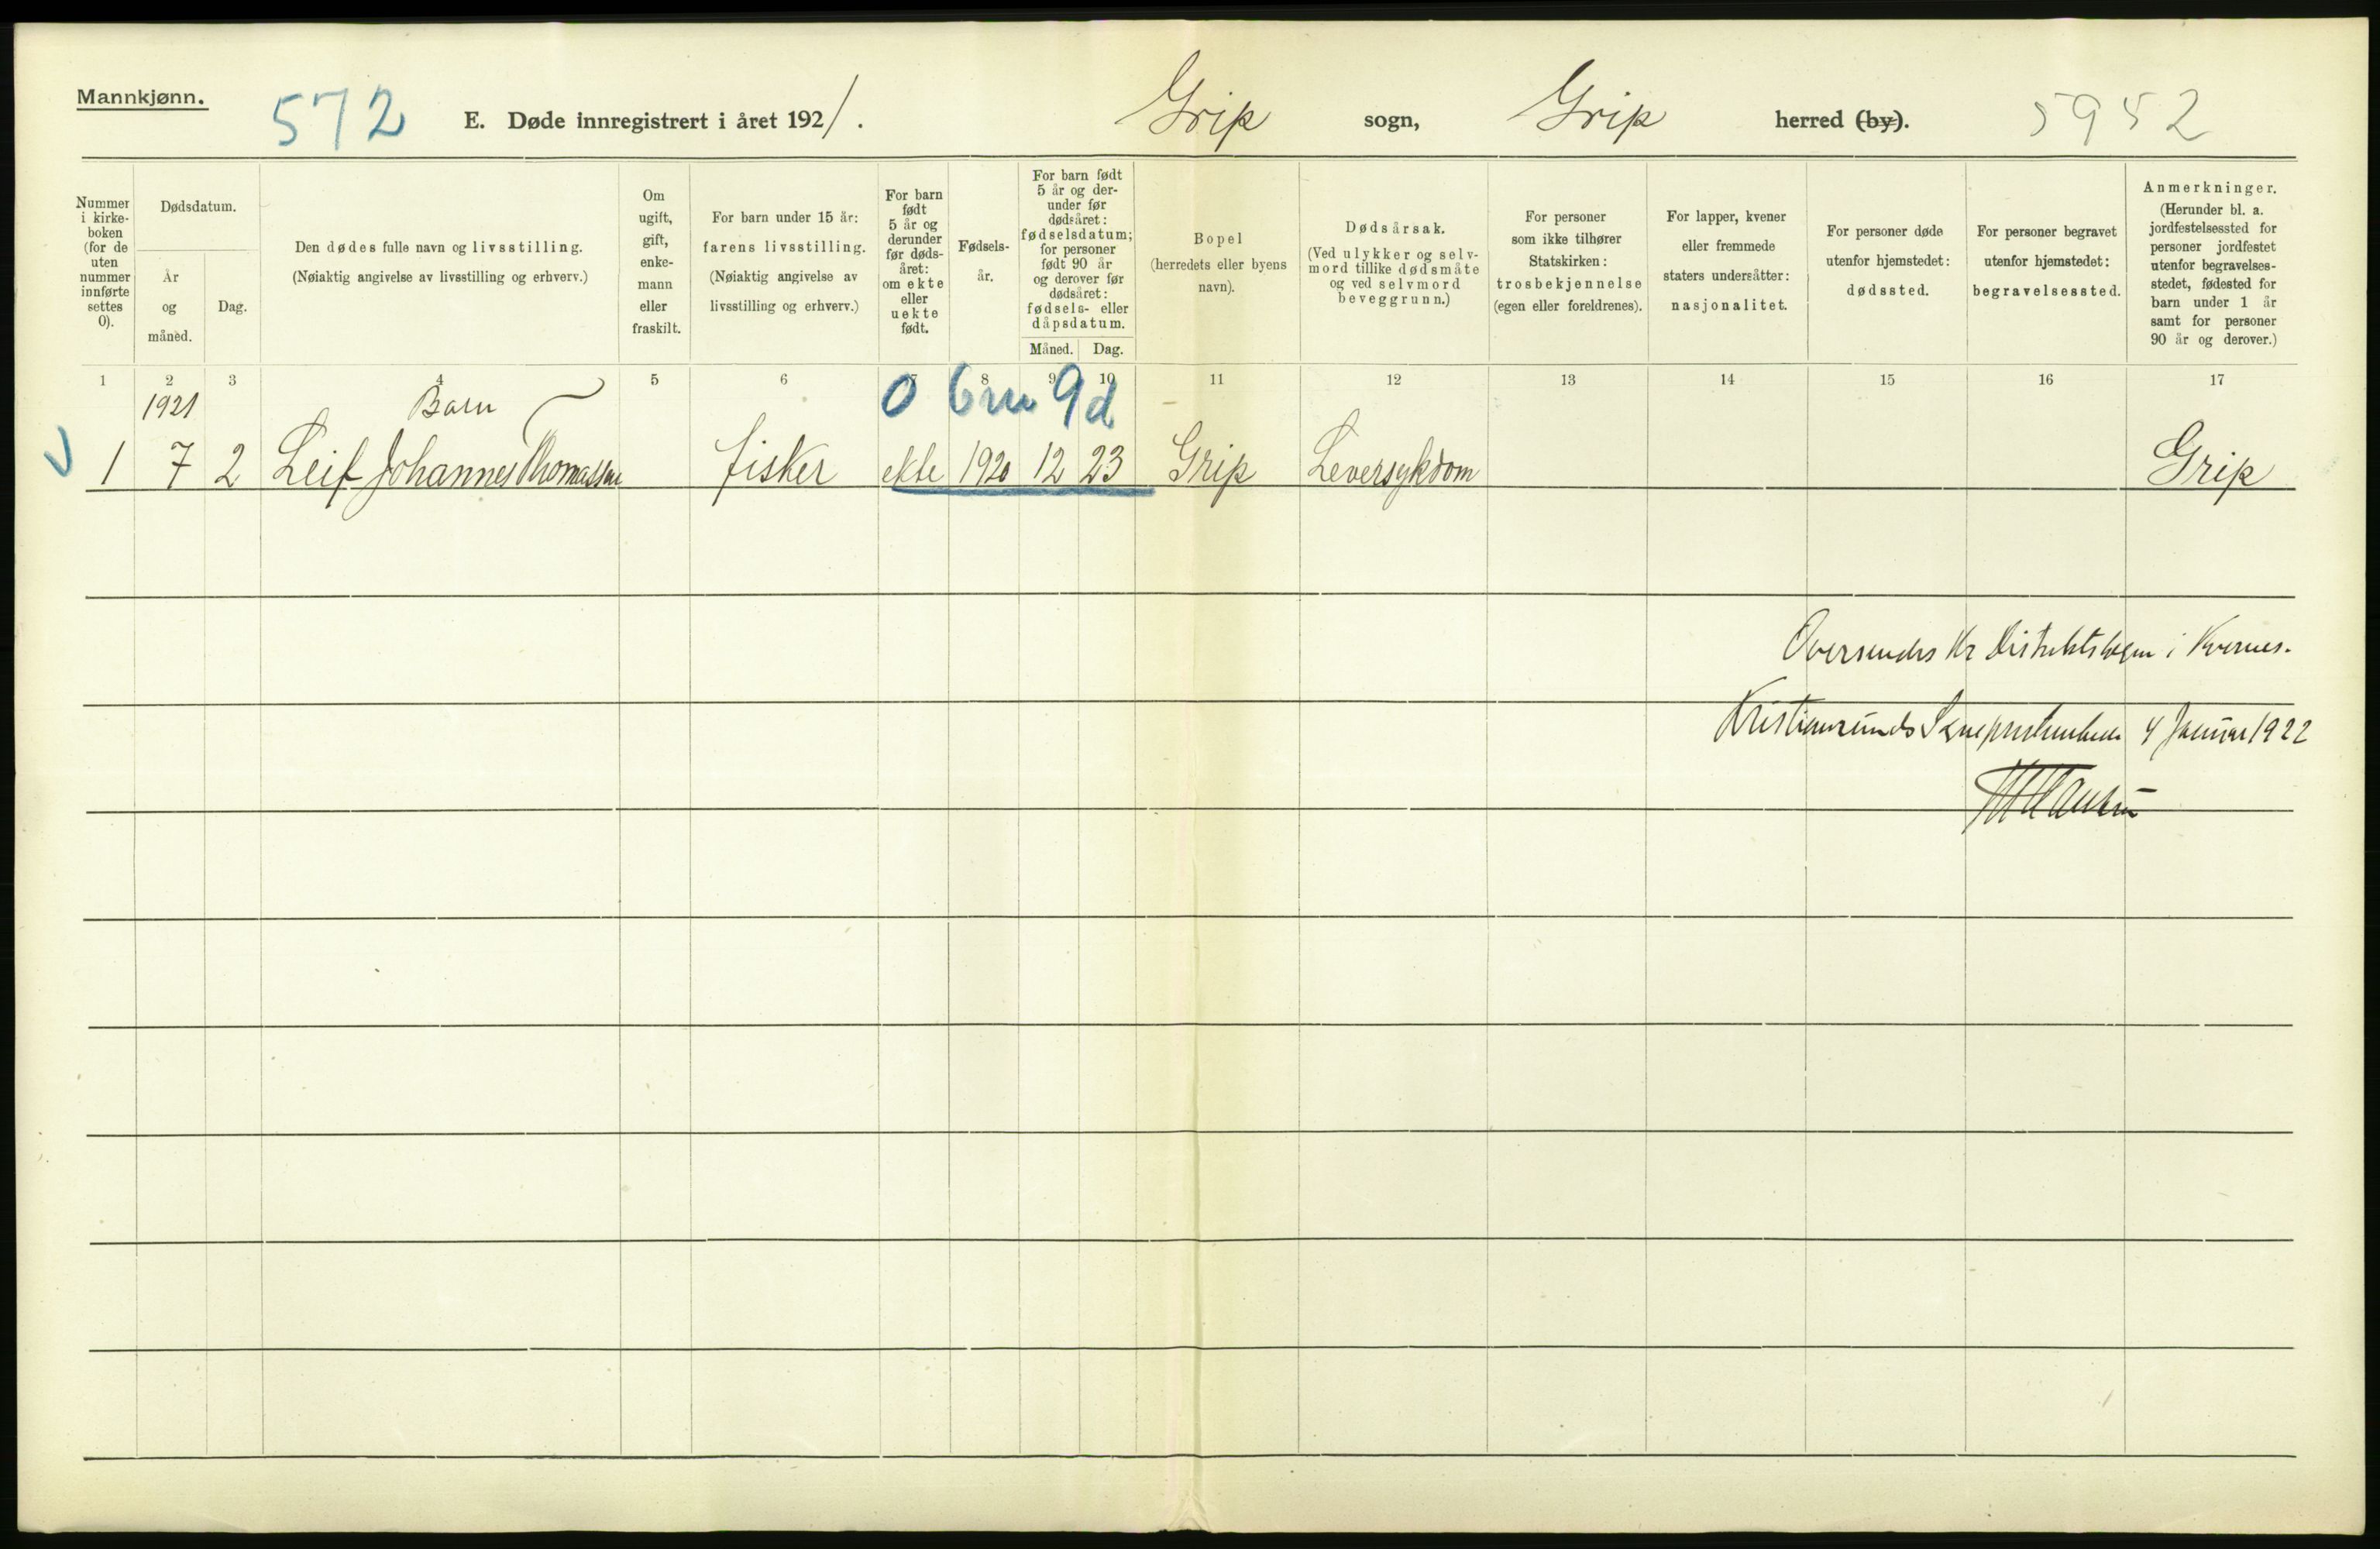 Mannkjønn.
572
E. Døde innregistrert i året 1921. Grip sogn, Grip herred (by).
5952
Nummer i kirke-boken (for de uten nummer innførte settes 0).
Dødsdatum.
År og måned.
Dag.
Den dødes fulle navn og livsstilling.
(Nøiaktig angivelse av livsstilling og erhverv.)
Om ugift, gift, enke-mann eller fraskilt.
For barn under 15 år:
farens livsstilling.
(Nøiaktig angivelse av
livsstilling og erhverv.)
For barn født 5 år og derunder før døds-året: om ekte eller uekte født.
Fødsels-år.
For barn født 5 år og der-under før dødsåret: fødselsdatum; for personer født 90 år og derover før dødsåret: fødsels- eller dåpsdatum.
Måned.
Dag.
Bopel
(herredets eller byens
navn).
Dødsårsak.
(Ved ulykker og selv-
mord tillike dødsmåte
og ved selvmord
beveggrunn.)
For personer
som ikke tilhører
Statskirken:
trosbekjennelse
(egen eller foreldrenes).
For lapper, kvener
eller fremmede
staters undersåtter:
nasjonalitet.
For personer døde
utenfor hjemstedet:
dødssted.
For personer begravet
utenfor hjemstedet:
begravelsessted.
Anmerkninger.
(Herunder bl. a.
jordfestelsessted for
personer jordfestet
utenfor begravelses-
stedet, fødested for
barn under 1 år
samt for personer
90 år og derover.)
1 2 3 4 5 6 7 8 9 10 11 12 13 14 15 16 17
1921 Barn 0 6m 9d
1 7 2 Leif Johannes Thomassen fisker ekte 1920 12 23 Grip Leversykdom Grip
Oversendes Hr Distriktslægen i Kvernes.
Kristiansunds Sogneprestembede 4 Januar 1922